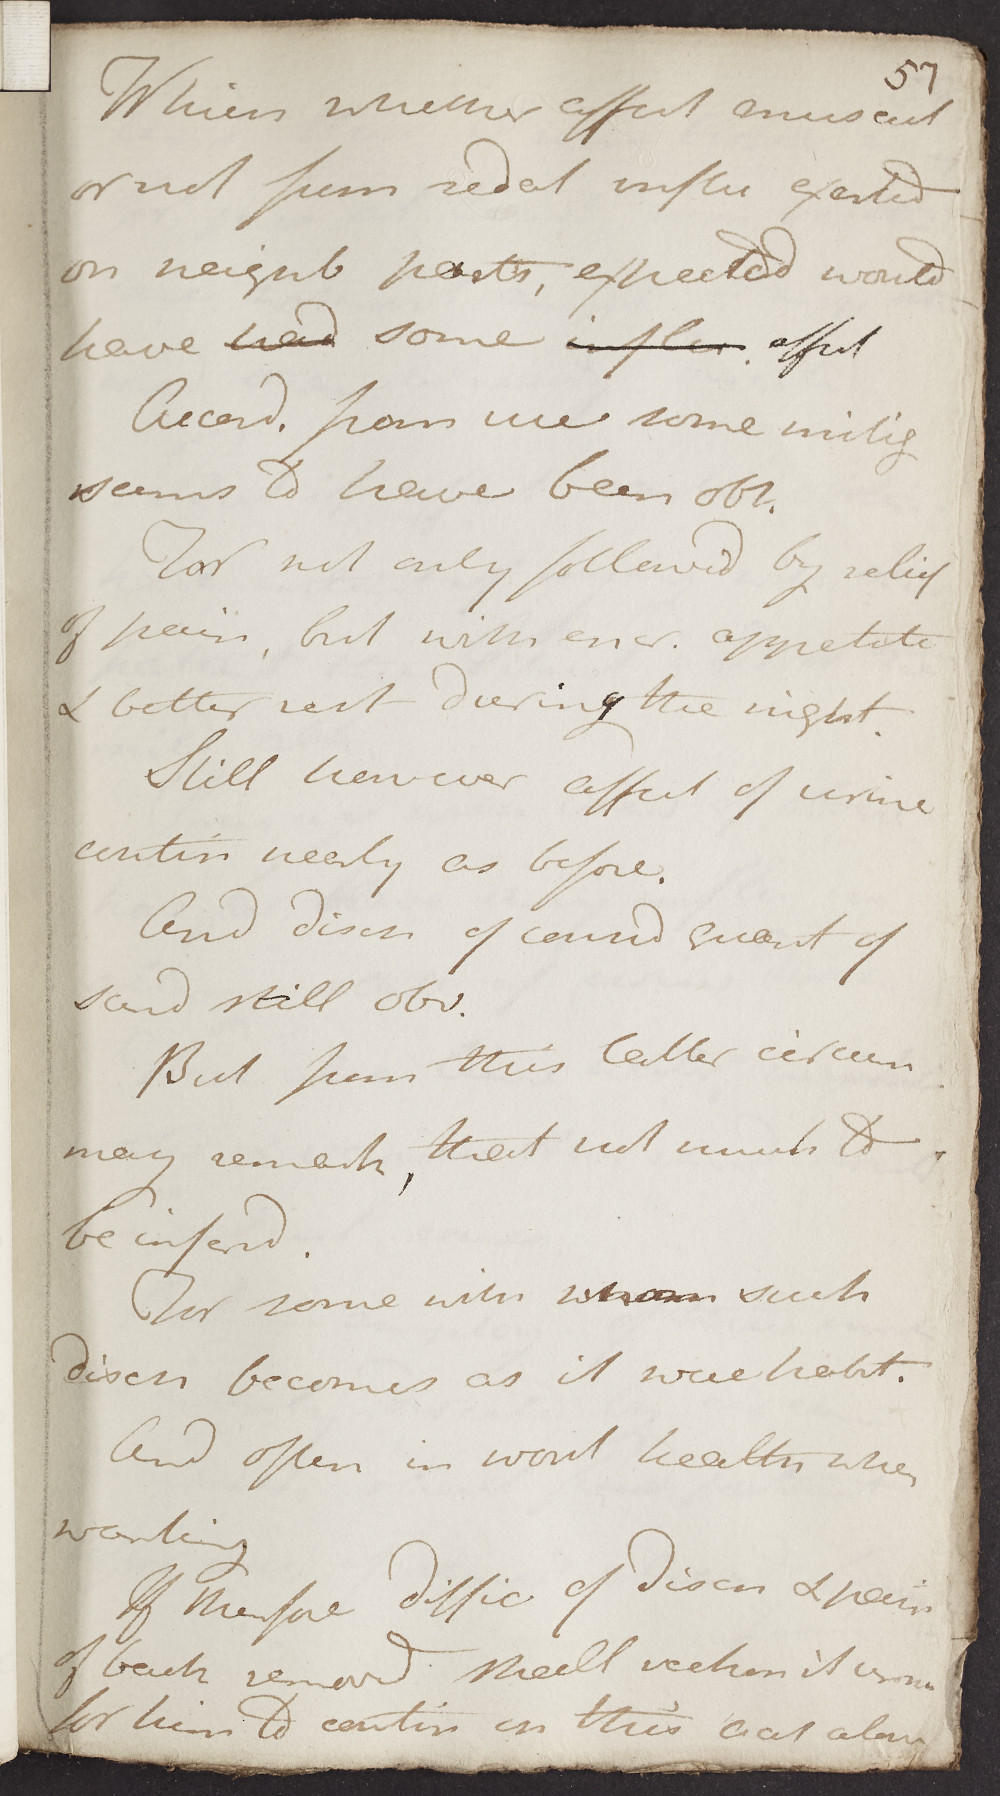 57
Which whether affect muscul
or not from sedat influ exerted
on neighb parts, expected would
have had some influ. effect
Accord. from use some mitig
seems to have been obt.
For not only followd by relief
of pain, but with encr. appetite
& better rest during the night.
Still however affect of urine
contin nearly as before.
And disch of consid quant of
sand still obv.
But from this latter circum
may remark, that not much to
be inferd.
For some with whom such
disch becomes as it were habit.
And often in worst health when
wanting
If therefore diffic of disch & pain
of back removd shall reckon it
for him to contin in this alone